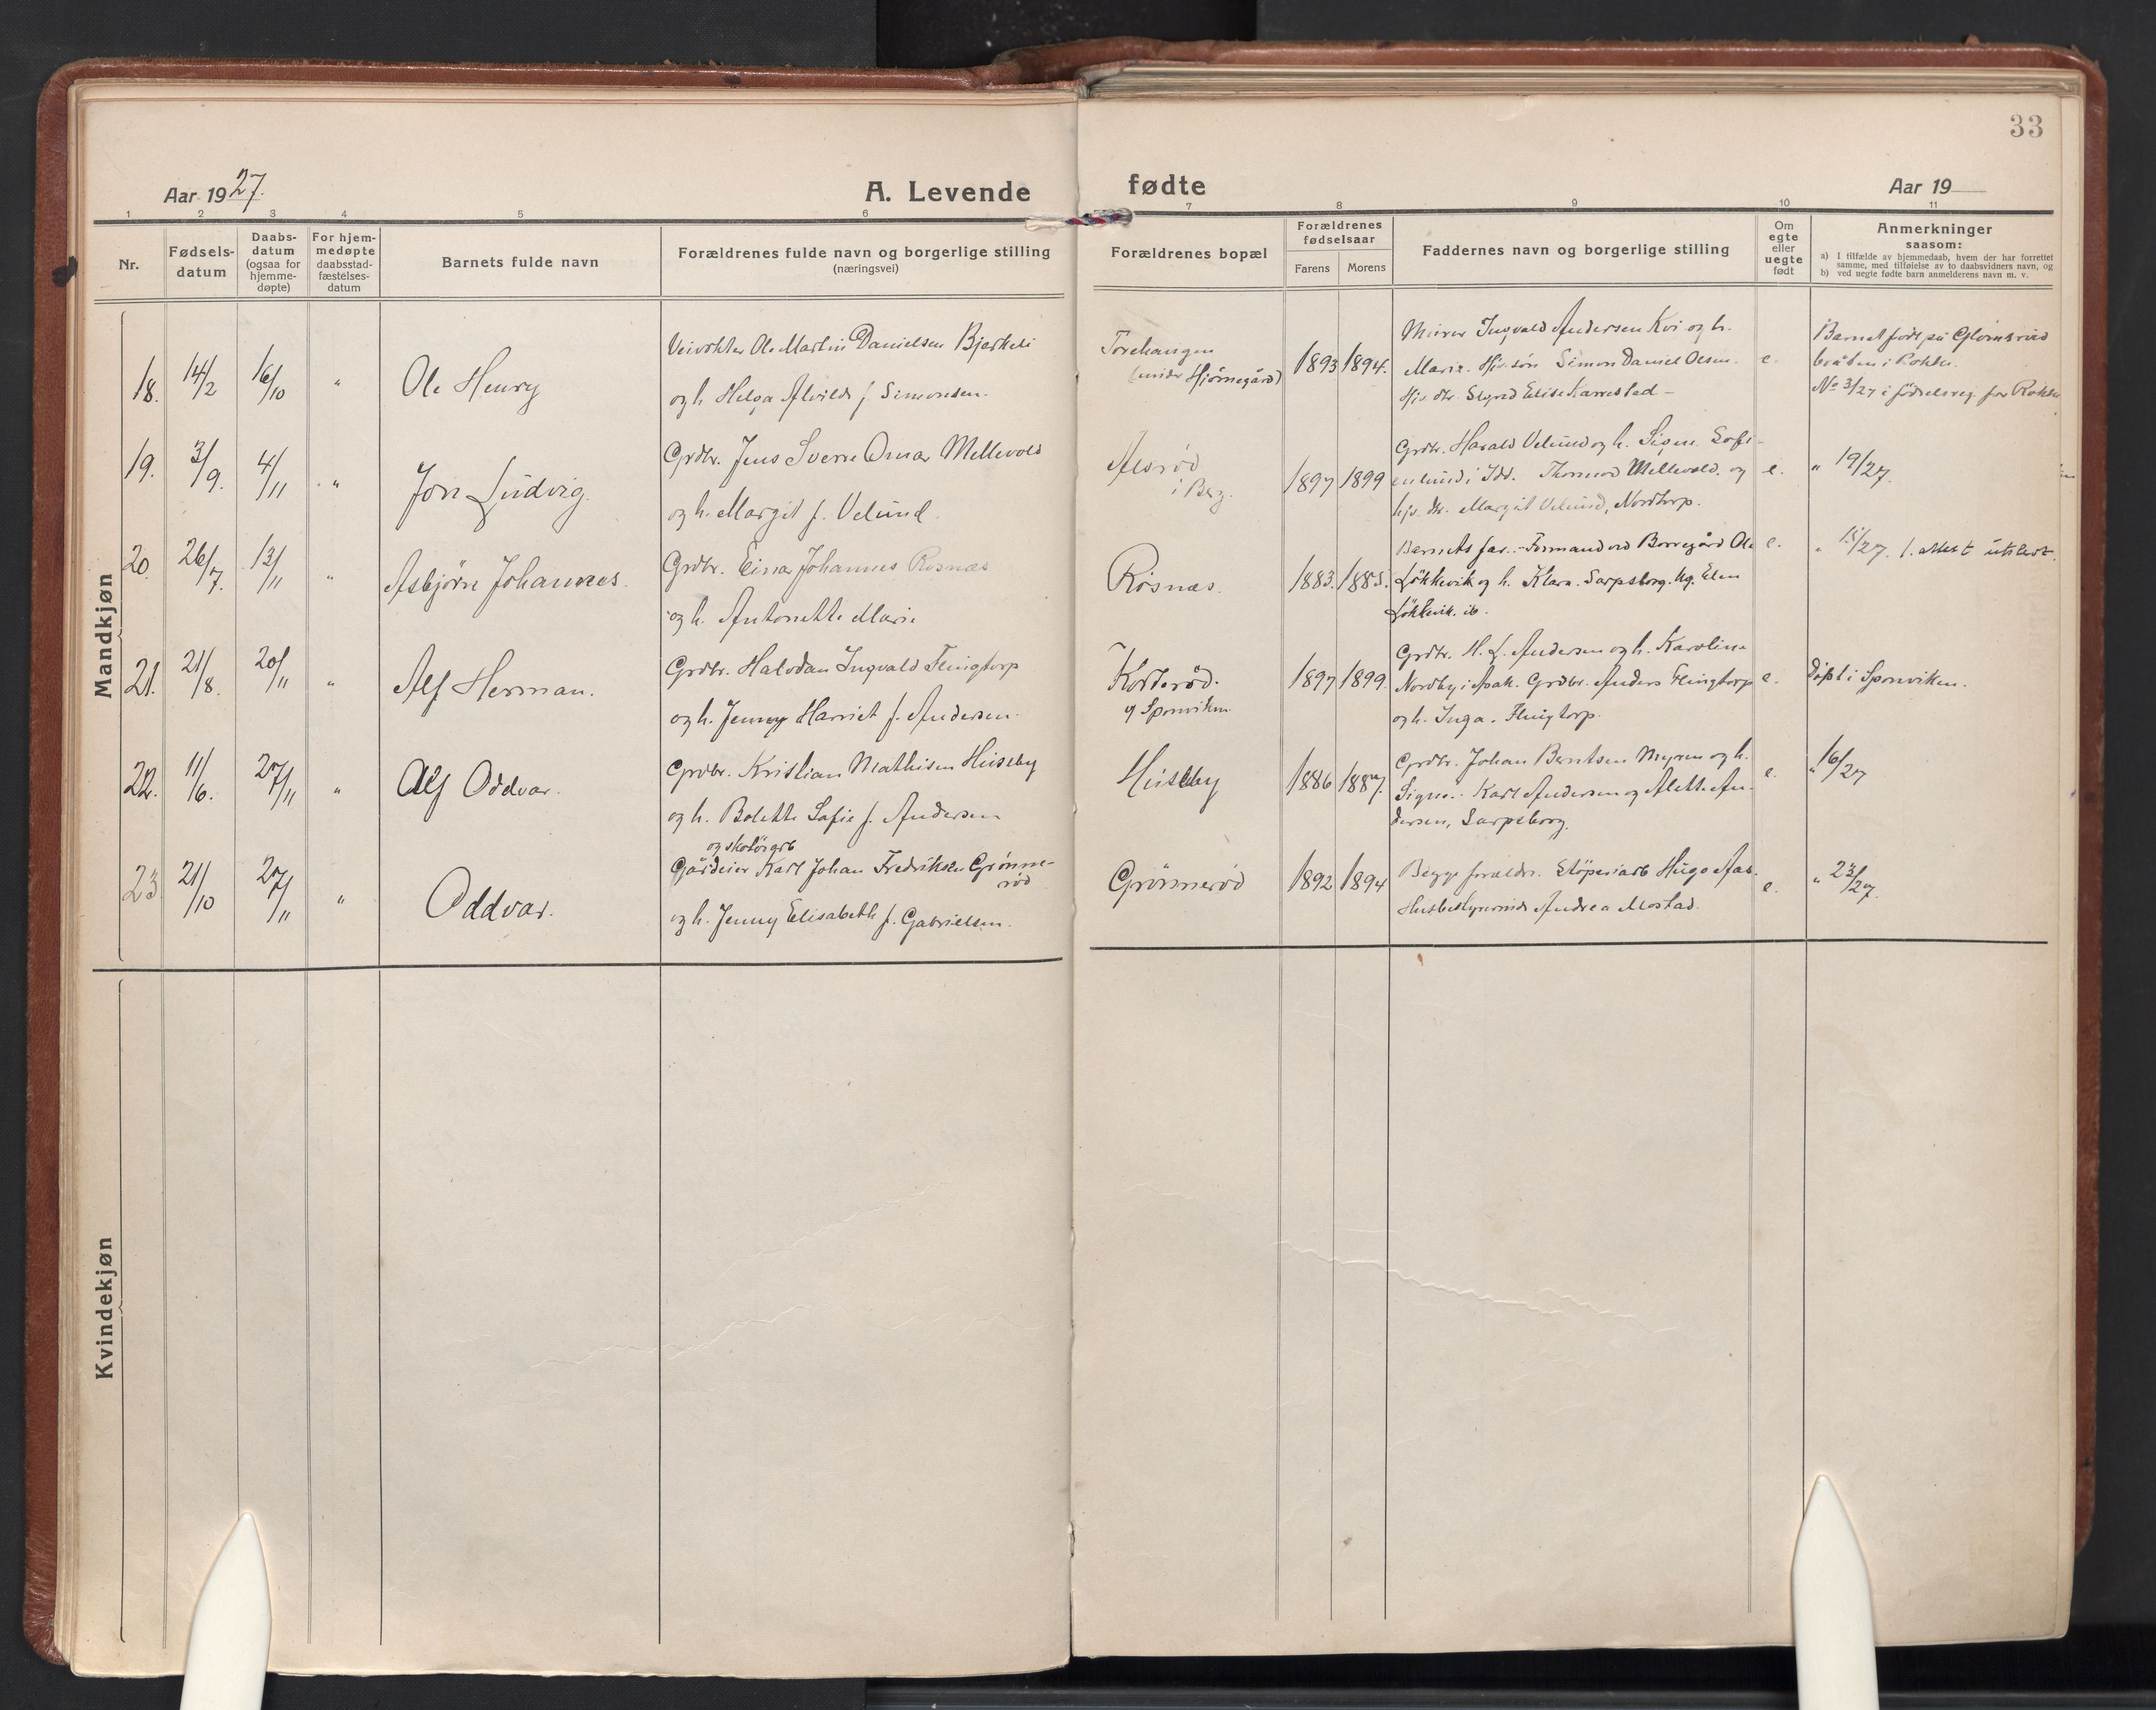 33
Aar 1927.
A. Levende
fødte
Aar 19
1 2 3 4 5 6
7 8 9 10 11
Nr.
Fødsels-
datum
Daabs-
datum
(ogsaa for
hjemme-
døpte)
For hjem-
medøpte
daabsstad-
fæstelses-
datum
Barnets fulde navn
Forældrenes fulde navn og borgerlige stilling
(næringsvei)
Forældrenes bopæl
Forældrenes
fødselsaar
Farens Morens
Faddernes navn og borgerlige stilling
Om
egte
eller
uegte
født
Anmerkninger
saasom:
a) I tilfælde av hjemmedaab, hvem der har forrettet
samme, med tilføielse av to daabsvidners navn, og
b) ved uegte fødte barn anmelderens navn m. v.
Mandkjøn
18. 14/2 16/10 " Ole Henry
Veivokter Ole Martin Danielsen Bjerkeli
og h. Helga Alvilde f. Simonsen.
Torehaugen
(under Hjörnegård)
1893 1894.
Murer Ingvald Andersen Kvi og h.
Marie. Hjv. sön Simon Daniel Olsen.
Hjv. dtr. Sigrid Elise Karrestad -
e.
Barnet födt på Glomsrud
bråten i Rokke.
No 3/27 i födselsreg. for Rokke
19. 3/9. 4/11 " Jon Ludvig.
Grdbr. Jens Sverre Omar Mellevold
og h. Margit f. Velund.
Alsröd
i Berg.
1897 1899
Grdbr. Harald Velund og h. Signe Sofi-
enlund i Idd. Thormod Mellevold. og
hjv. dtr. Margit Velund, Nordtorp.
e.
" 19/27.
20. 26/7. 13/11 " Asbjörn Johannes.
Grdbr. Einar Johannes Rösnæs
og h. Antonette Marie
Rösnæs.
1883. 1885.
Barnets far. - Formand ved Borregård Ole
Lökkevik og h. Klara. Sarpsborg. Ug. Elen
Lökkevik. ib.
e.
" 15/27. 1. attest utstedt.
21. 21/8. 20/11 " Alf Herman.
Grdbr. Halvdan Ingvald Flingtorp
og h. Jenny Harriet f. Andersen.
Korteröd.
y Sponviken
1897 1899.
Grdbr. H. L. Andersen og h. Karoline
Nordby i Asak. Grdbr. Anders Flingtorp
og h. Inga. Flingtorp.
e.
döpt i Sponviken.
22. 11/6. 27/11 " Alf Oddvar.
Grdbr. Kristian Mathisen Huseby
og h. Bolette Sofie f. Andersen
Huseby
1886 1887.
Grdbr. Johan Berntsen Myren og h.
Signe. - Karl Andersen og Alette An-
dersen, Sarpsborg.
e.
" 16/27
23. 21/10 27/11 " Oddvar.
og skotöiarb
Gårdeier Karl Johan Fredriksen Grönne-
röd
og h. Jenny Elisabeth f. Gabrielsen.
Grönneröd
1892 1894
Begge foreldr. Stöperiarb Hugo Aas.
Husbestyrerinde Andrea Mostad.
e.
" 23/27.
Kvindekjøn